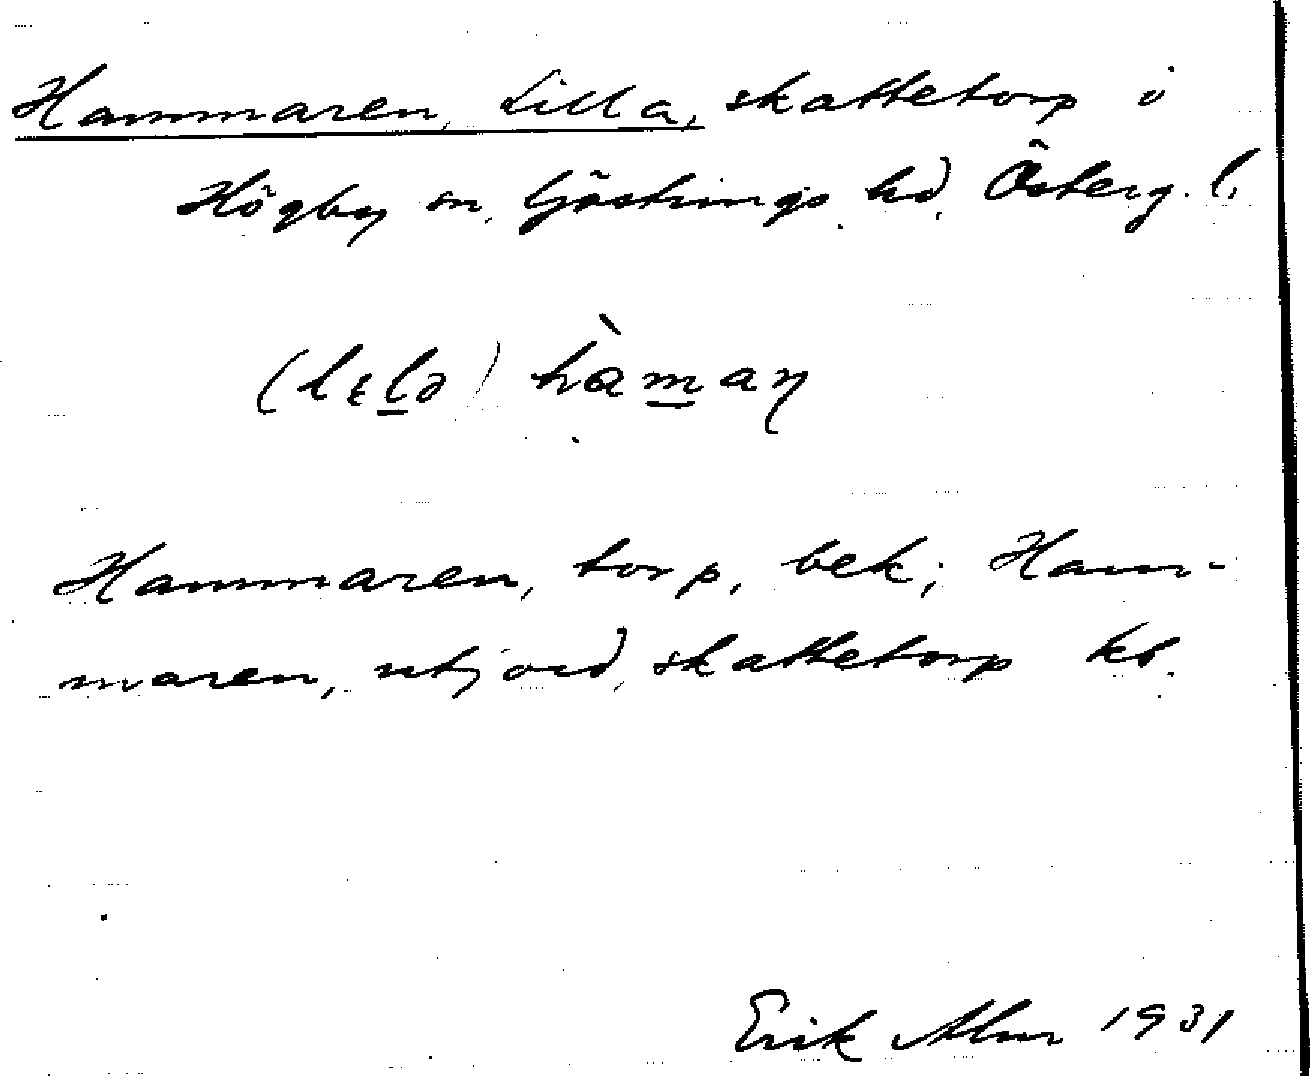 Hammaren, Lilla, skattetorp i
Högby sn, Göstrings hd, Österg. l.
(lɛl̲ə) hàm̲aṇ
Hammaren, torp, bek; Ham-
maren, utjord, skattetorp kb.
Erik Alm 1931